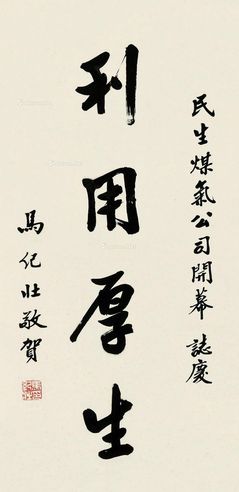 民生煤氣公司開幕 誌慶
利用厚生
馬紀壯敬賀